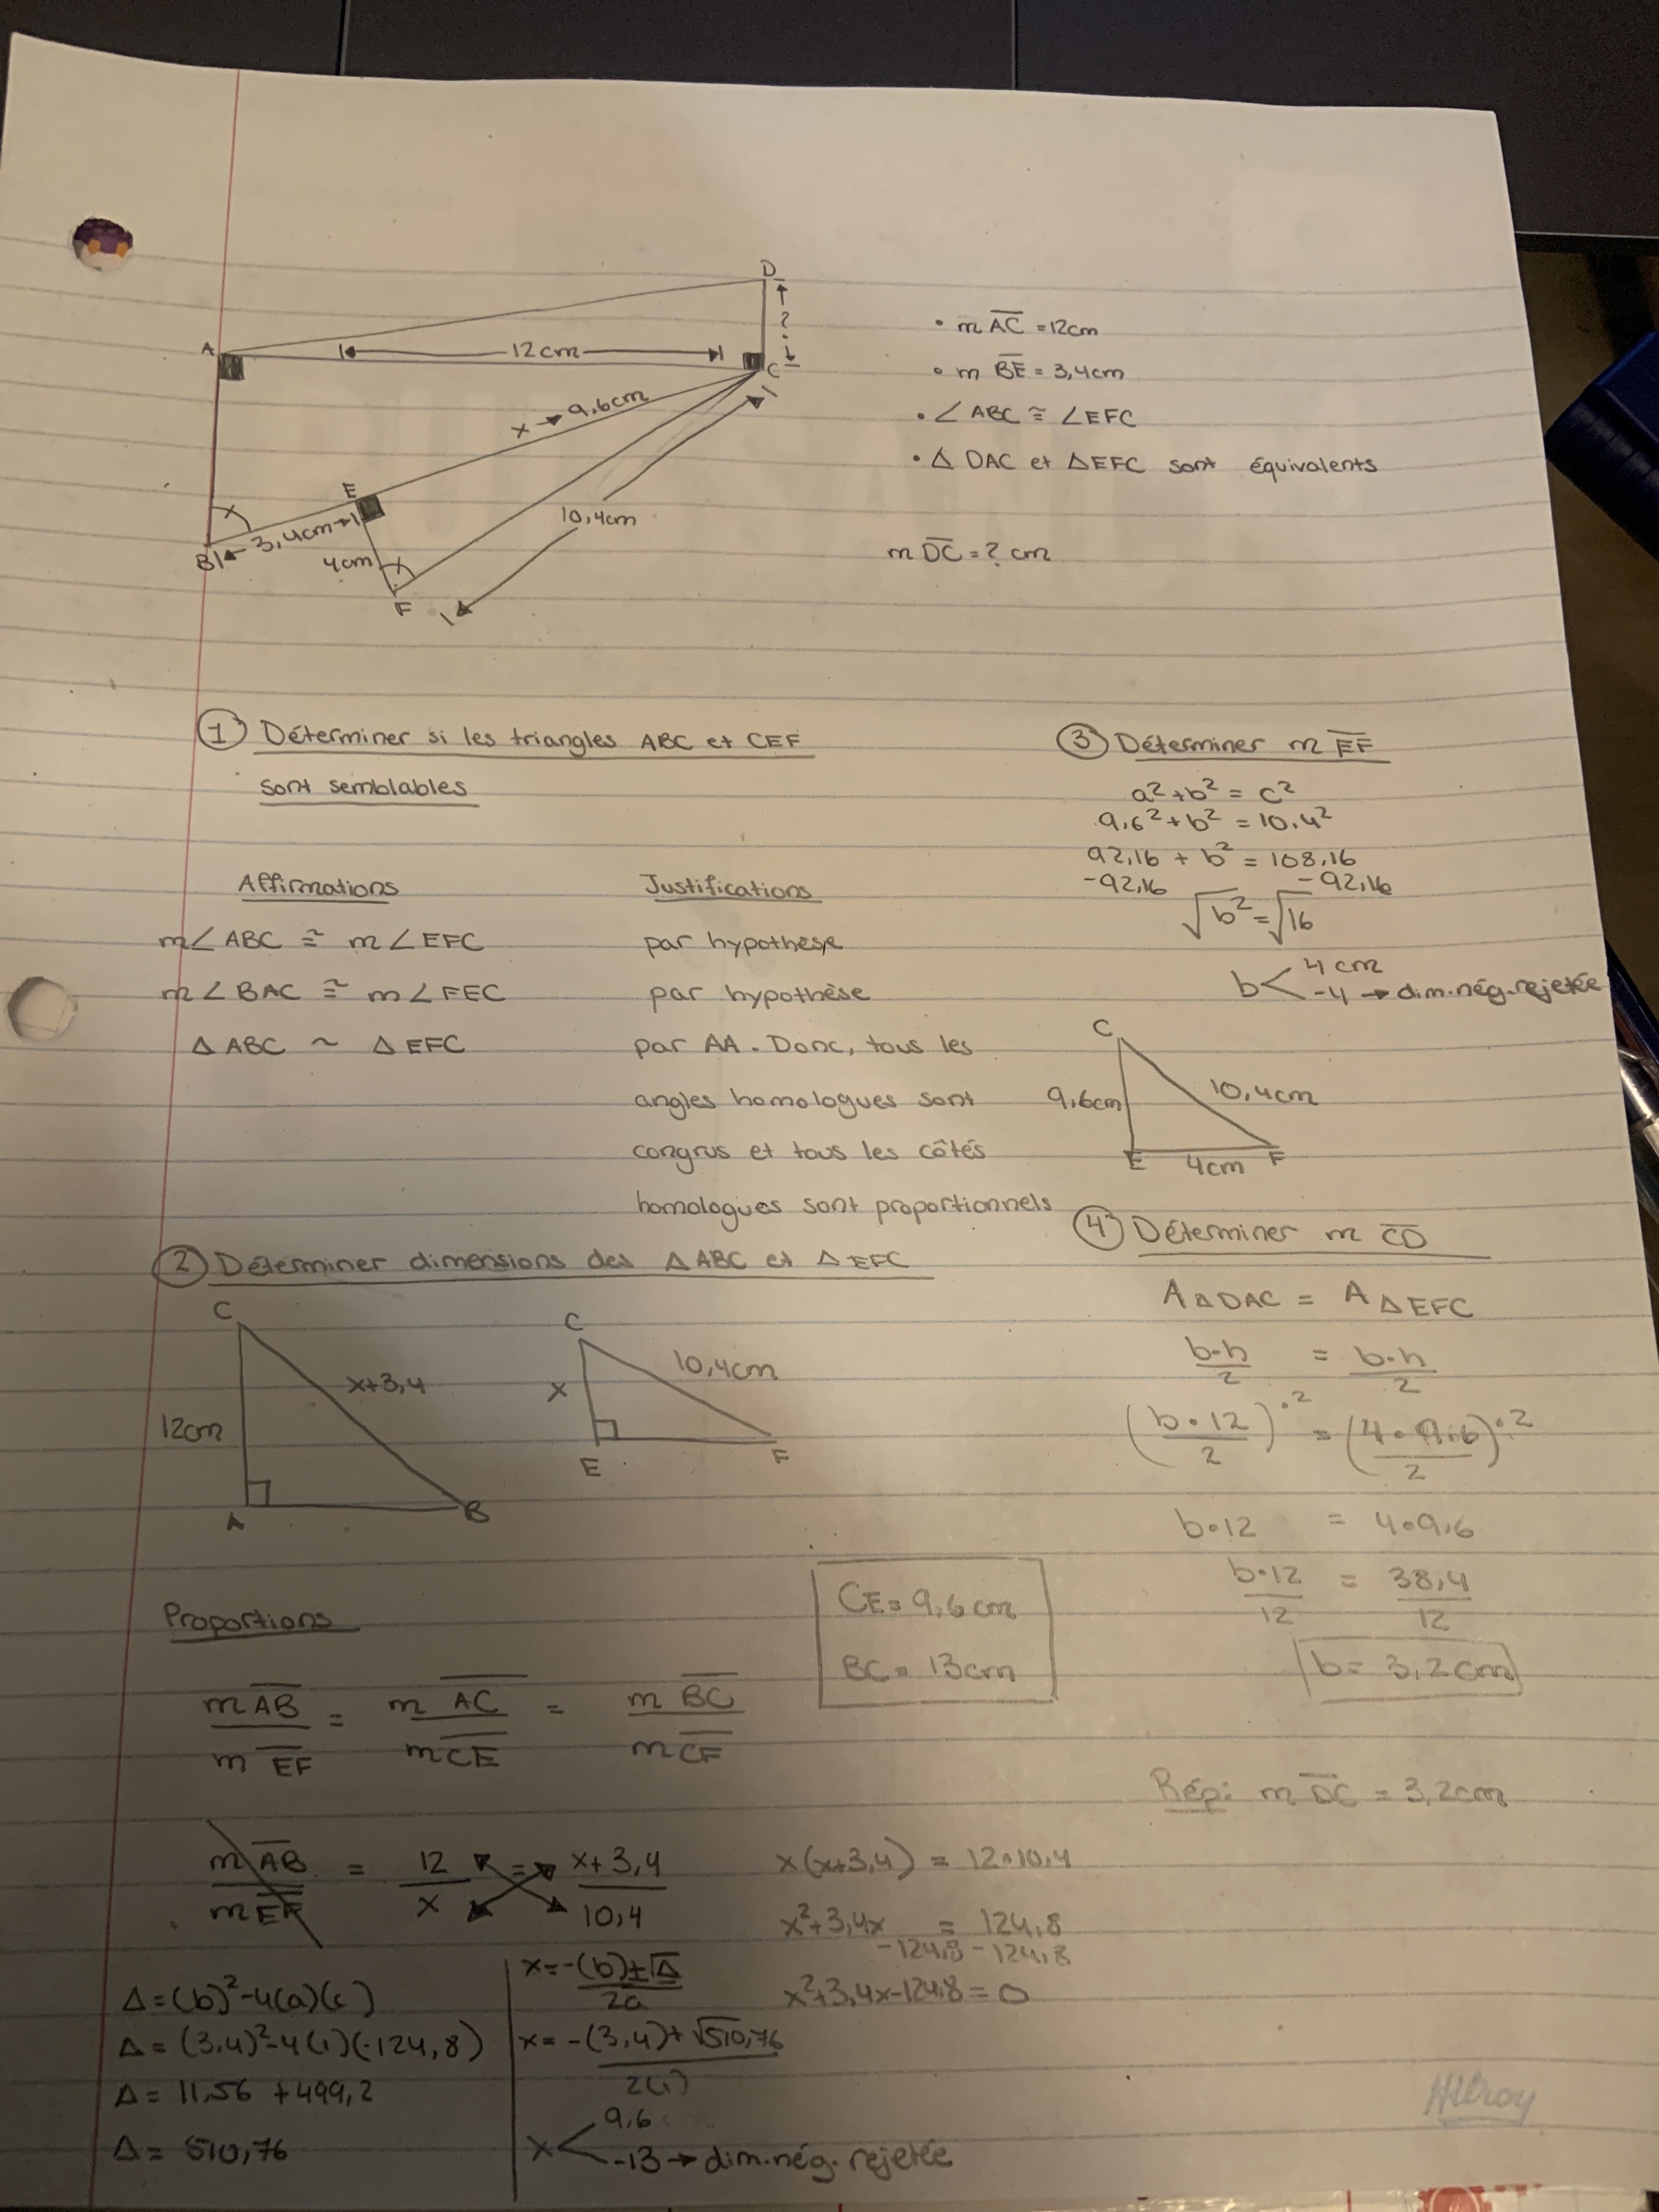 D
A
12cm
?
C
x → 9,6cm
E
3,4cm
B
4cm
10,4cm
F
• m AC = 12cm
• m BE = 3,4cm
• ∠ ABC ≅ ∠EFC
• Δ DAC et ΔEFC sont équivalents
m DC = ? cm
① Déterminer si les triangles ABC et CEF
sont semblables
Affirmations Justifications
m∠ ABC ≅ m∠EFC par hypothèse
m∠BAC ≅ m∠FEC par hypothèse
Δ ABC ~ Δ EFC par AA. Donc, tous les
angles homologues sont
congrus et tous les côtés
homologues sont proportionnels
② Déterminer dimensions des Δ ABC et Δ EFC
C
x+3,4
12cm
A
B
C
10,4cm
x
E
F
Proportions
m AB / m EF = m AC / m CE = m BC / m CF
CE = 9,6cm
BC = 13cm
m AB / m EF = 12 / x = x+3,4 / 10,4
x(x+3,4) = 12•10,4
x²+3,4x = 124,8
-124,8 -124,8
x²+3,4x-124,8 = 0
Δ = (b)²-4(a)(c)
Δ = (3,4)²-4(1)(-124,8)
Δ = 11,56 + 499,2
Δ = 510,76
x = -(b)±√Δ / 2a
x = -(3,4)±√510,76 / 2(1)
x < 9,6 cm
-13 → dim.nég.rejetée
③ Déterminer m EF
a²+b² = c²
9,6²+b² = 10,4²
92,16 + b² = 108,16
-92,16 -92,16
√b² = √16
b < 4 cm
-4 → dim.nég.rejetée
C
9,6cm
10,4cm
E
4cm
F
④ Déterminer m CD
A Δ DAC = A Δ EFC
b•h / 2 = b•h / 2
(b•12 / 2)•2 = (4•9,6 / 2)•2
b•12 = 4•9,6
b•12 / 12 = 38,4 / 12
b = 3,2cm
Rép: m DC = 3,2cm
Hilroy